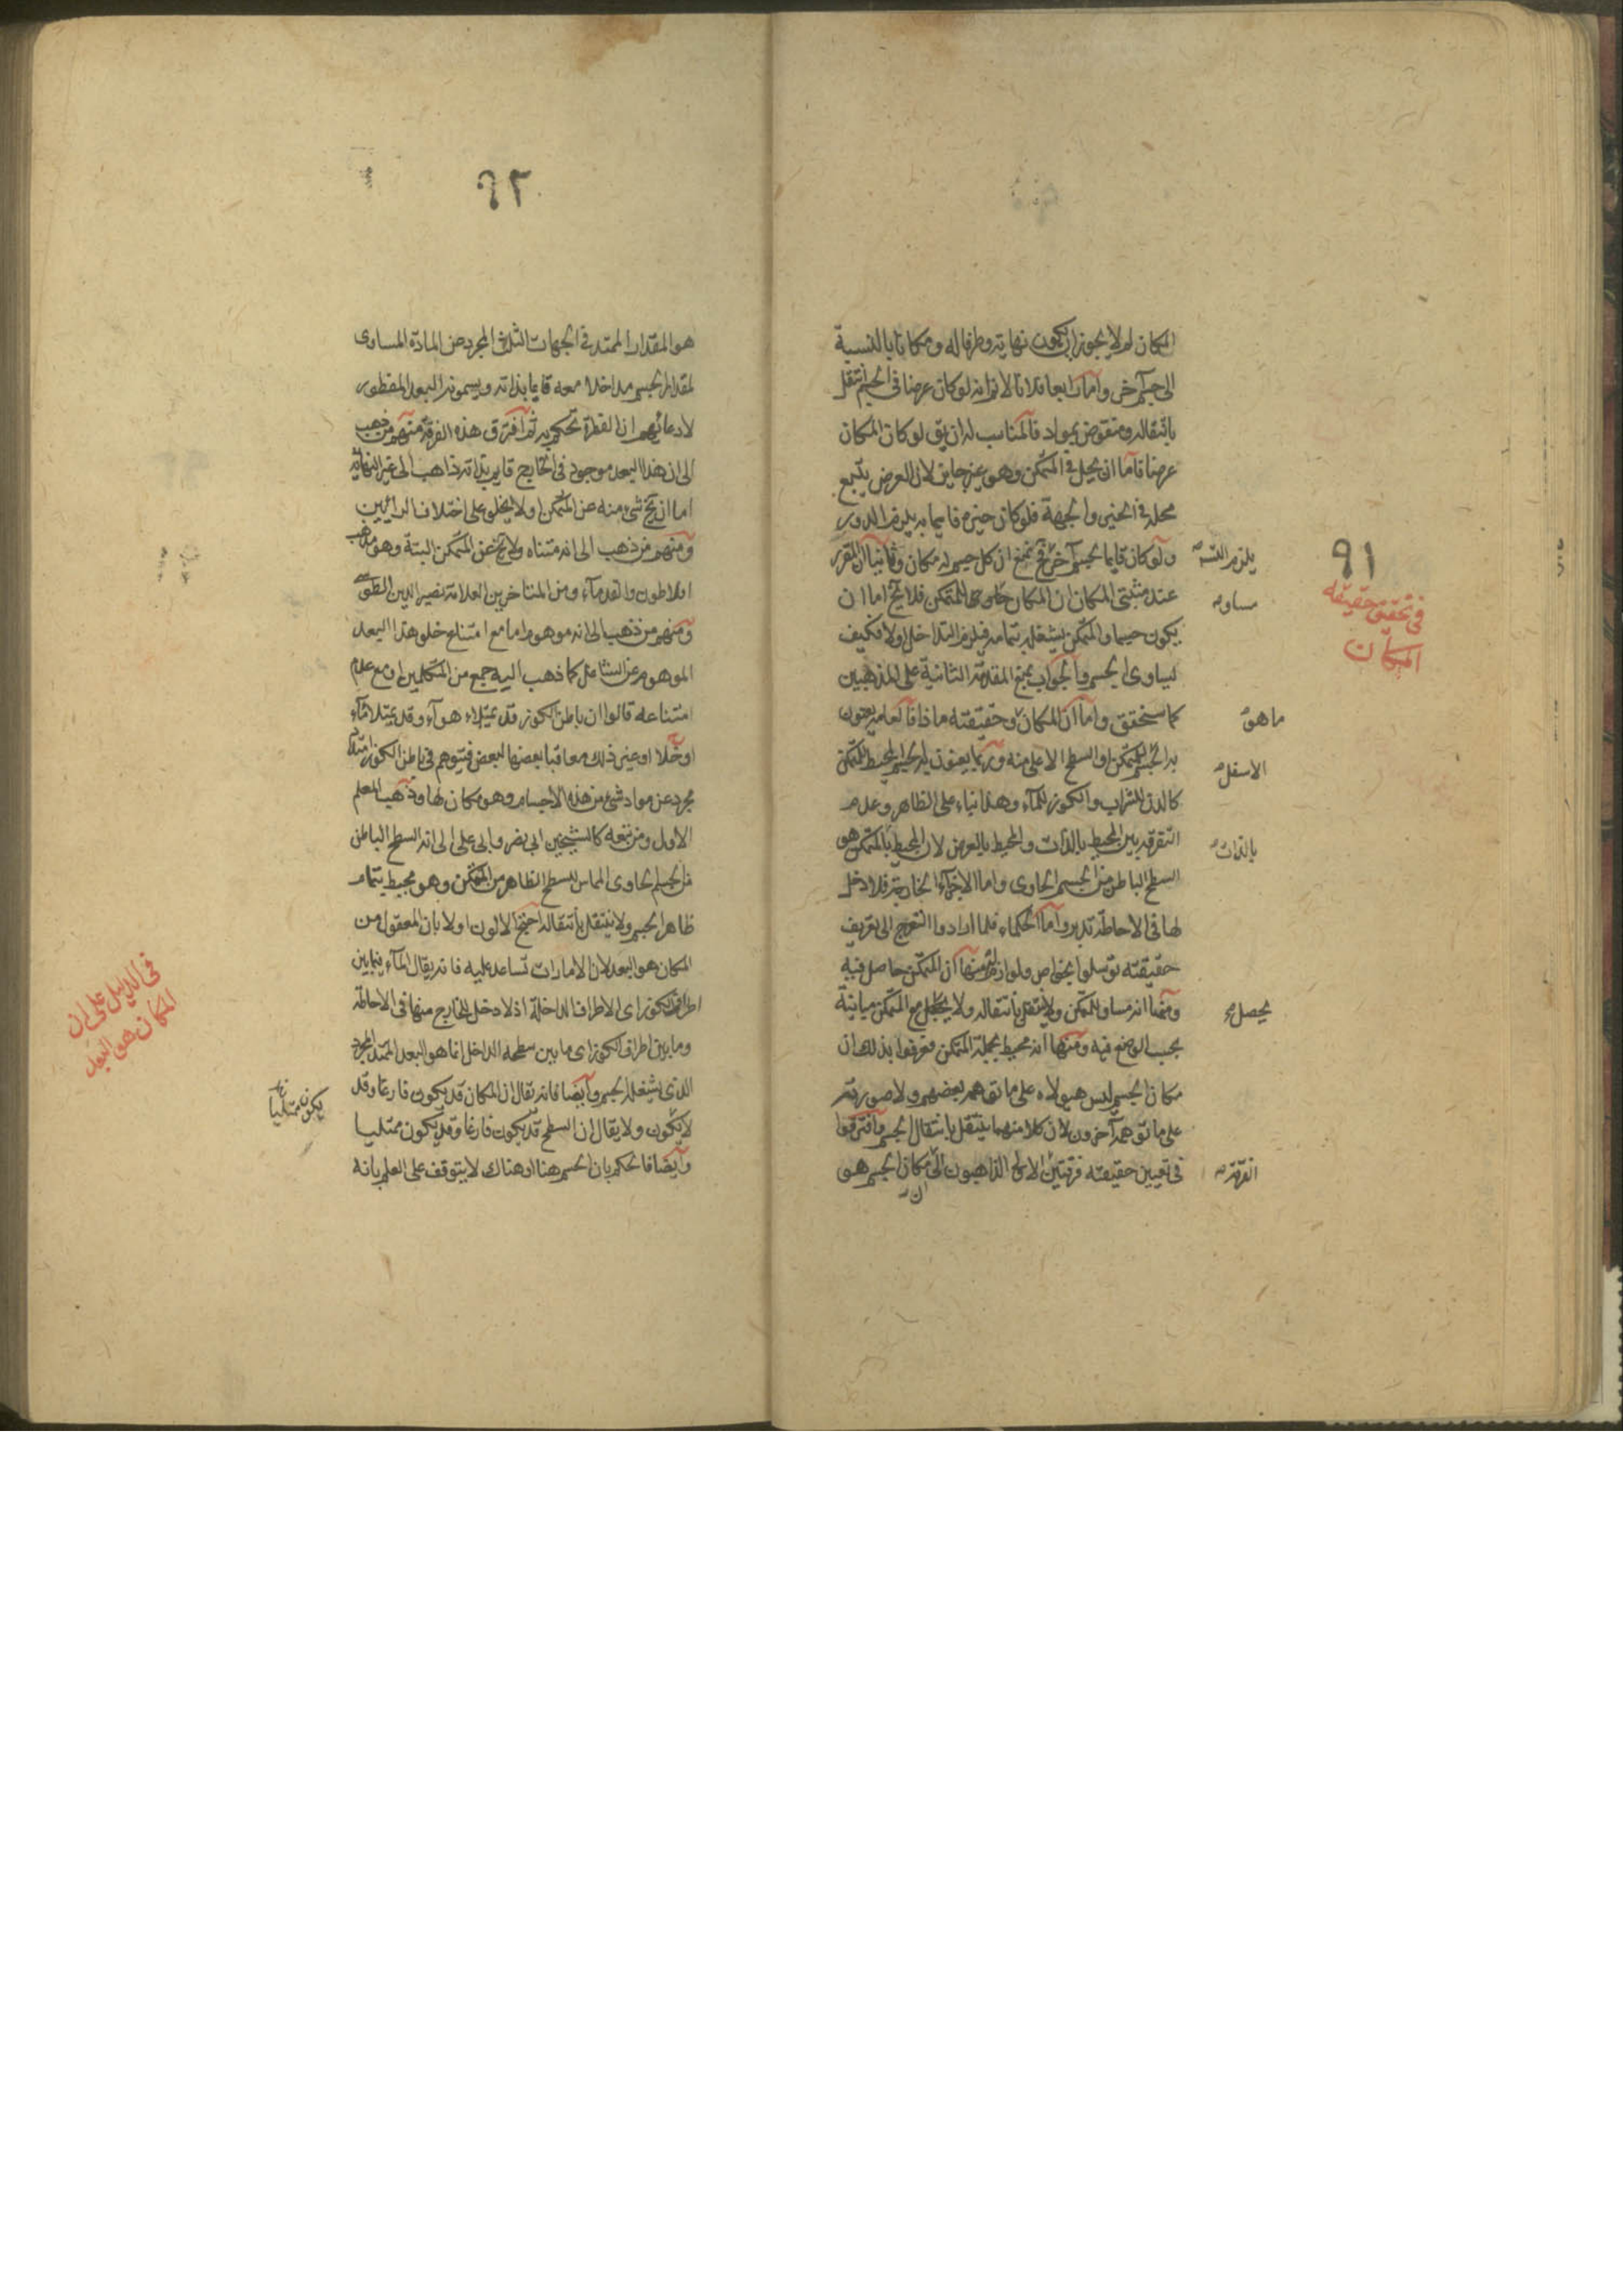 المكان لم لا يجوز ان يكون نهايته وطرفا له ومكانا بالنسبة
الى جسم آخر واما رابعا فلانا لا نم انه لو كان عرضا في الجسم انتقل
بانتقاله ومنقوض بمواد فالمناسب له ان يق لو كان المكان
عرضا فاما ان يحل في المتمكن وهو غير جايز لان العرض يتبع
محله في الحيز والجهة فلو كان حيزه قايما به يلزم الدور
ولو كان قايما بجسم آخر فح نمنع ان كل جسم له مكان وثانيا ان المقرر
عند مثبتي المكان ان المكان للمتمكن فلا يخ اما ان
يكون جسما والمتمكن يشغله بتمامه فيلزم التداخل اولا فكيف
يساوى الجسم والجواب بمنع المقدمة الثانية على المذهبين
كما ستحقق واما ان المكان وحقيقته ماذا فالعامة يعنون
به الجسم المتمكن او السطح الاعلى منه وربما يعنون به الجسم المحيط بالمتمكن
كالدن للشراب والكوز للماء وهذا بناء على الظاهر وعدم
التفرقة بين المحيط بالذات والمحيط بالعرض لان المحيط بالمتمكن هو
السطح الباطن من الجسم الحاوى واما الاجزاء الخارجة فلا دخل
لها في الاحاطة تدبر واما الحكماء فلما ارادوا التعرج الى تعريف
حقيقته توسلوا بخواص ولوازم منها ان المتمكن حاصل فيه
ومنها انه مساو للمتمكن ولا ينتقل بانتقاله ولا يحصل مع المتمكن مباينة
بحسب الوضع فيه ومنها انه محيط بجملة المتمكن فعرفوا بذلك ان
مكان الجسم ليس هيولاه على ما توهمه بعضهم ولا صورته
على ما توهمه آخرون لان كلا منهما ينتقل بانتقال الجسم وافترقوا
في تعيين حقيقته فرقتين الاولى الذاهبون الى مكان الجسم هو
ان
٩١
في تحقيق حقيقة
المكان
يلزم التسـ
مساو
ما هو
الاسفل
بالذات
يحصل
الفرقة
٩٢
هو المقدار الممتد في الجهات الثلث المجرد عن المادة المساوى
لمقدار الجسم مداخلا معه قايما بذاته ويسمونه البعد المفطور
لادعائهم ان الفطرة تحكم به ثم افترق هذه الفرقة منهم من ذهب
الى ان هذا البعد موجود في الخارج قايم بذاته ذاهب الى غير النهاية
اما ان يخ شئ منه عن المتمكن اولا يخلو على اختلاف الرائيين
ومنهم من ذهب الى انه متناه ولا يخ عن المتمكن البتة وهو مذهب
افلاطون والقدماء ومن المتاخرين العلامة نصير الدين الطوسى
ومنهم من ذهب الى انه موهوم اما مع امتناع خلو هذا البعد
الموهوم عن الشاغل كما ذهب اليه جمع من المتكلمين او مع عدم
امتناعه قالوا ان باطن الكوز قد يمتلاء هواء وقد يمتلا ماء
او خلا او غير ذلك معاقبا بعضها لبعض فيتوهم في باطن الكوز امتداد
مجرد عن مواد شئ من هذه الاجسام وهو مكان لها وذهب المعلم
الاول ومن تبعه كالشيخين ابى نصر وابى على الى انه السطح الباطن
من الجسم الحاوى المماس للسطح الظاهر من المتمكن وهو محيط بتمام
ظاهر الجسم ولا ينتقل بانتقاله احتج الاولون اولا بان المعقول من
المكان هو البعد لان الامارات تساعد عليه فانه يقال الماء فيما بين
اطراف الكوز اى الاطراف الداخلة اذ لا دخل للخارج منها في الاحاطة
وما بين اطراف الكوز اى ما بين سطحه الداخل انما هو البعد الممتد المجرد
الذى يشغله الجسم وايضا فانه يقال ان المكان قد يكون فارغا وقد
لا يكون ولا يقال ان السطح قد يكون فارغا وقد يكون ممتليا
وايضا فالحكم بان الجسم هنا او هناك لا يتوقف على العلم بانه
في الدليل على ان
المكان هو البعد
يكون ممتليا